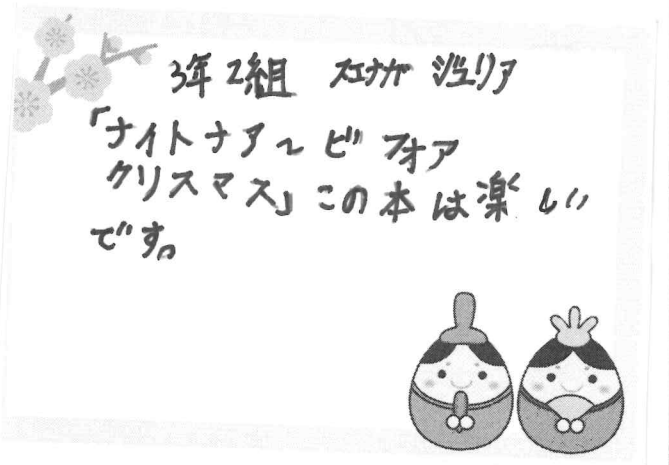 3年2組 スエナガ ジュリア
「ナイトナア～ビフォア
クリスマス」この本は楽しい
です。